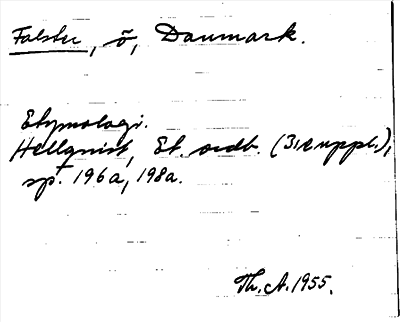 Falster, ö, Danmark.
Etymologi.
Hellquist, Et. ordb. (3:e uppl.),
sp. 196a, 198a.
Th. A. 1955.